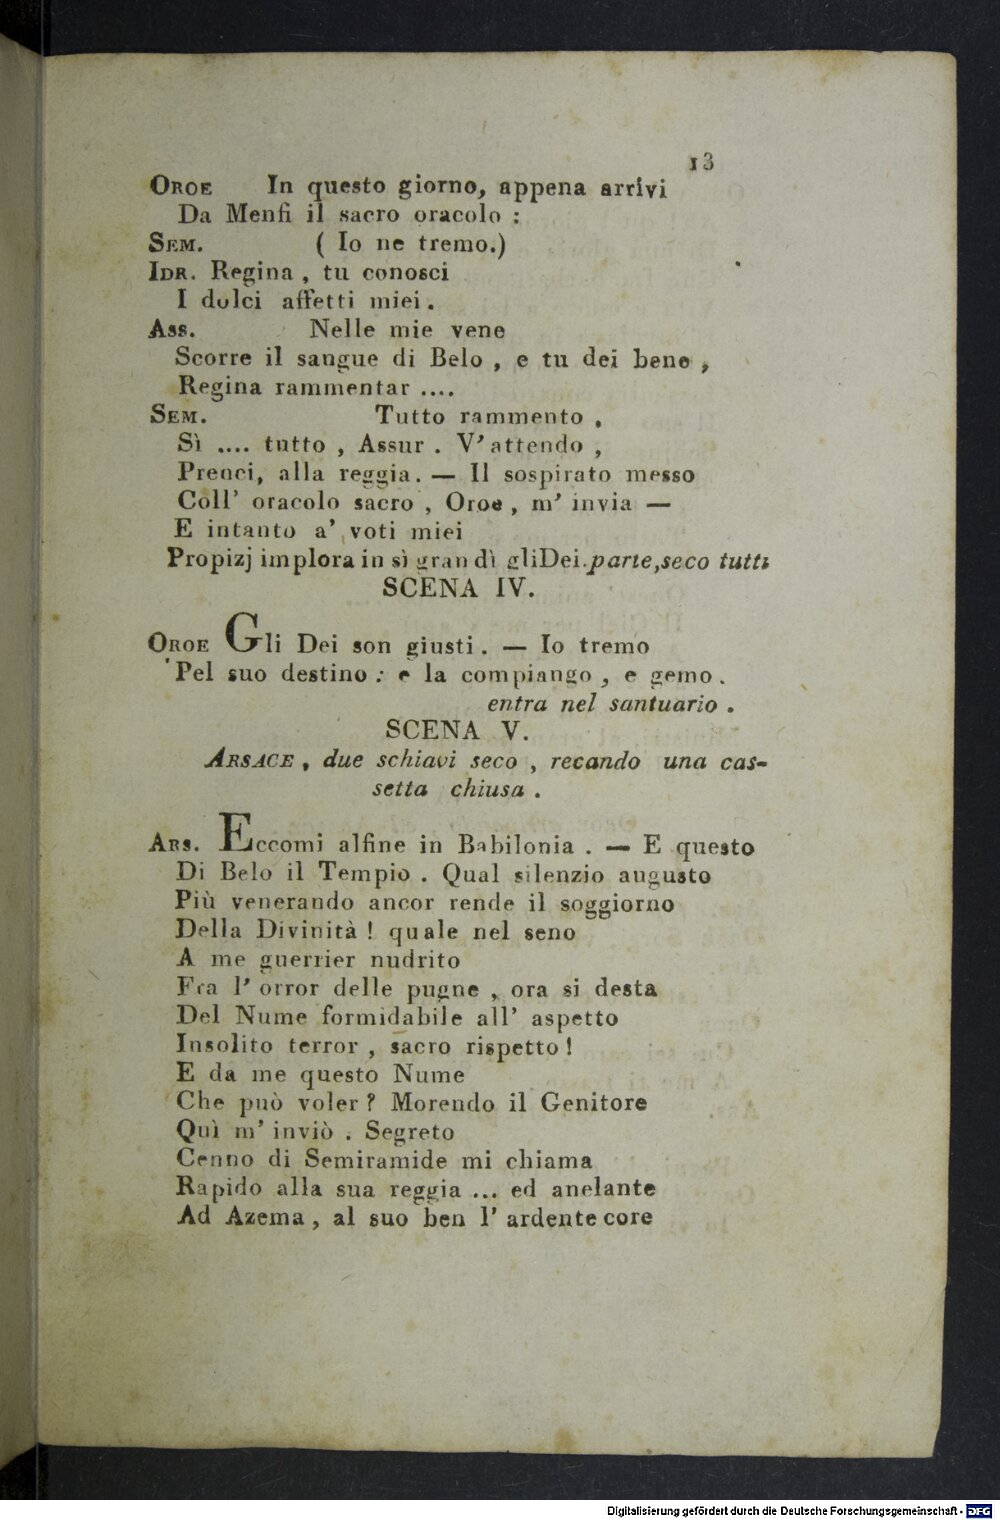 13
OROE In questo giorno, appena arrivi
Da Menfi il sacro oracolo :
SEM. ( Io ne tremo.)
IDR. Regina , tu conosci
I dolci affetti miei .
ASS. Nelle mie vene
Scorre il sangue di Belo , e tu dei bene ,
Regina rammentar ....
SEM. Tutto rammento ,
Sì .... tutto , Assur . V' attendo ,
Prenci, alla reggia. — Il sospirato messo
Coll' oracolo sacro , Oroe , m' invia —
E intanto a' voti miei
Propizj implora in sì gran dì gliDei.parte,seco tutti
SCENA IV.
OROE Gli Dei son giusti . — Io tremo
Pel suo destino : e la compiango , e gemo .
entra nel santuario .
SCENA V.
ARSACE , due schiavi seco , recando una cas-
setta chiusa .
ARS. Eccomi alfine in Babilonia . — E questo
Di Belo il Tempio . Qual silenzio augusto
Più venerando ancor rende il soggiorno
Della Divinità ! quale nel seno
A me guerrier nudrito
Fra l' orror delle pugne , ora si desta
Del Nume formidabile all' aspetto
Insolito terror , sacro rispetto !
E da me questo Nume
Che può voler ? Morendo il Genitore
Quì m' inviò . Segreto
Cenno di Semiramide mi chiama
Rapido alla sua reggia ... ed anelante
Ad Azema , al suo ben l' ardente core
Digitalisierung gefördert durch die Deutsche Forschungsgemeinschaft - DFG